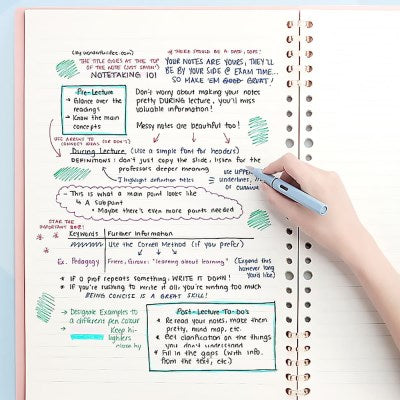 THE TITLE GOES AT THE TOP
OF THE NOTE
NOTETAKING 101
↑ THERE SHOULD BE A DATE, OOPS!
YOUR NOTES ARE YOURS, THEY'LL
BE BY YOUR SIDE @ EXAM TIME...
SO MAKE 'EM GOOD GREAT!
Pre-Lecture
→ Glance over the
readings
→ Know the main
concepts
Don't worry about making your notes
pretty DURING lecture, you'll miss
valuable information!
Messy notes are beautiful too!
USE ARROWS TO
CONNECT IDEAS (OR DON'T)
During Lecture (Use a simple font for headers)
DEFINITIONS: don't just copy the slide, listen for the
professors deeper meaning
I highlight definition titles
USE UPPER
underlines,
OF CURSIVE
- This is what a main point looks like
↳ A subpoint
• Maybe there's even more points needed
STAR THE
IMPORTANT
Keywords
Further Information
Use the Cornell Method (if you prefer)
Ex. Pedagogy
Freire, "learning about learning"
(Expand this
however long
you'd like)
* If a prof repeats something: WRITE IT DOWN!
* If you're rushing to write it all, you're writing too much
BEING CONCISE IS A GREAT SKILL!
→ Designate Examples to
a different pen colour
→ Keep hi-
lighters
close by
Post-Lecture To-do's
* Re-read your notes, make them
pretty, mind map, etc.
* Get clarification on the things
you don't understand
* Fill in the gaps (with info.
from the text, etc.)